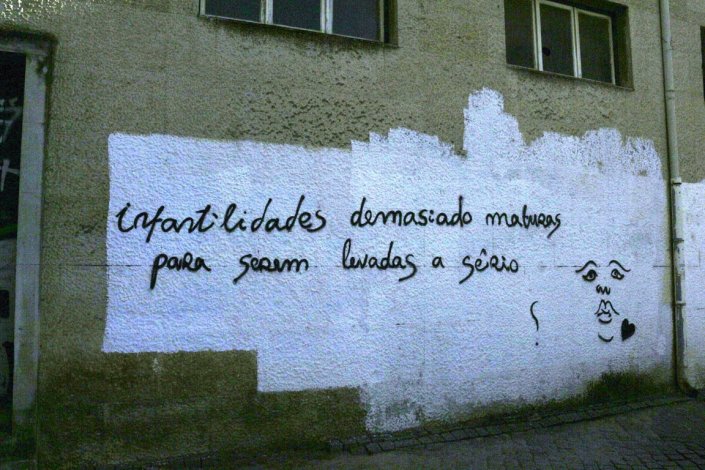 infantilidades demasiado maturas
para serem levadas a sêrio